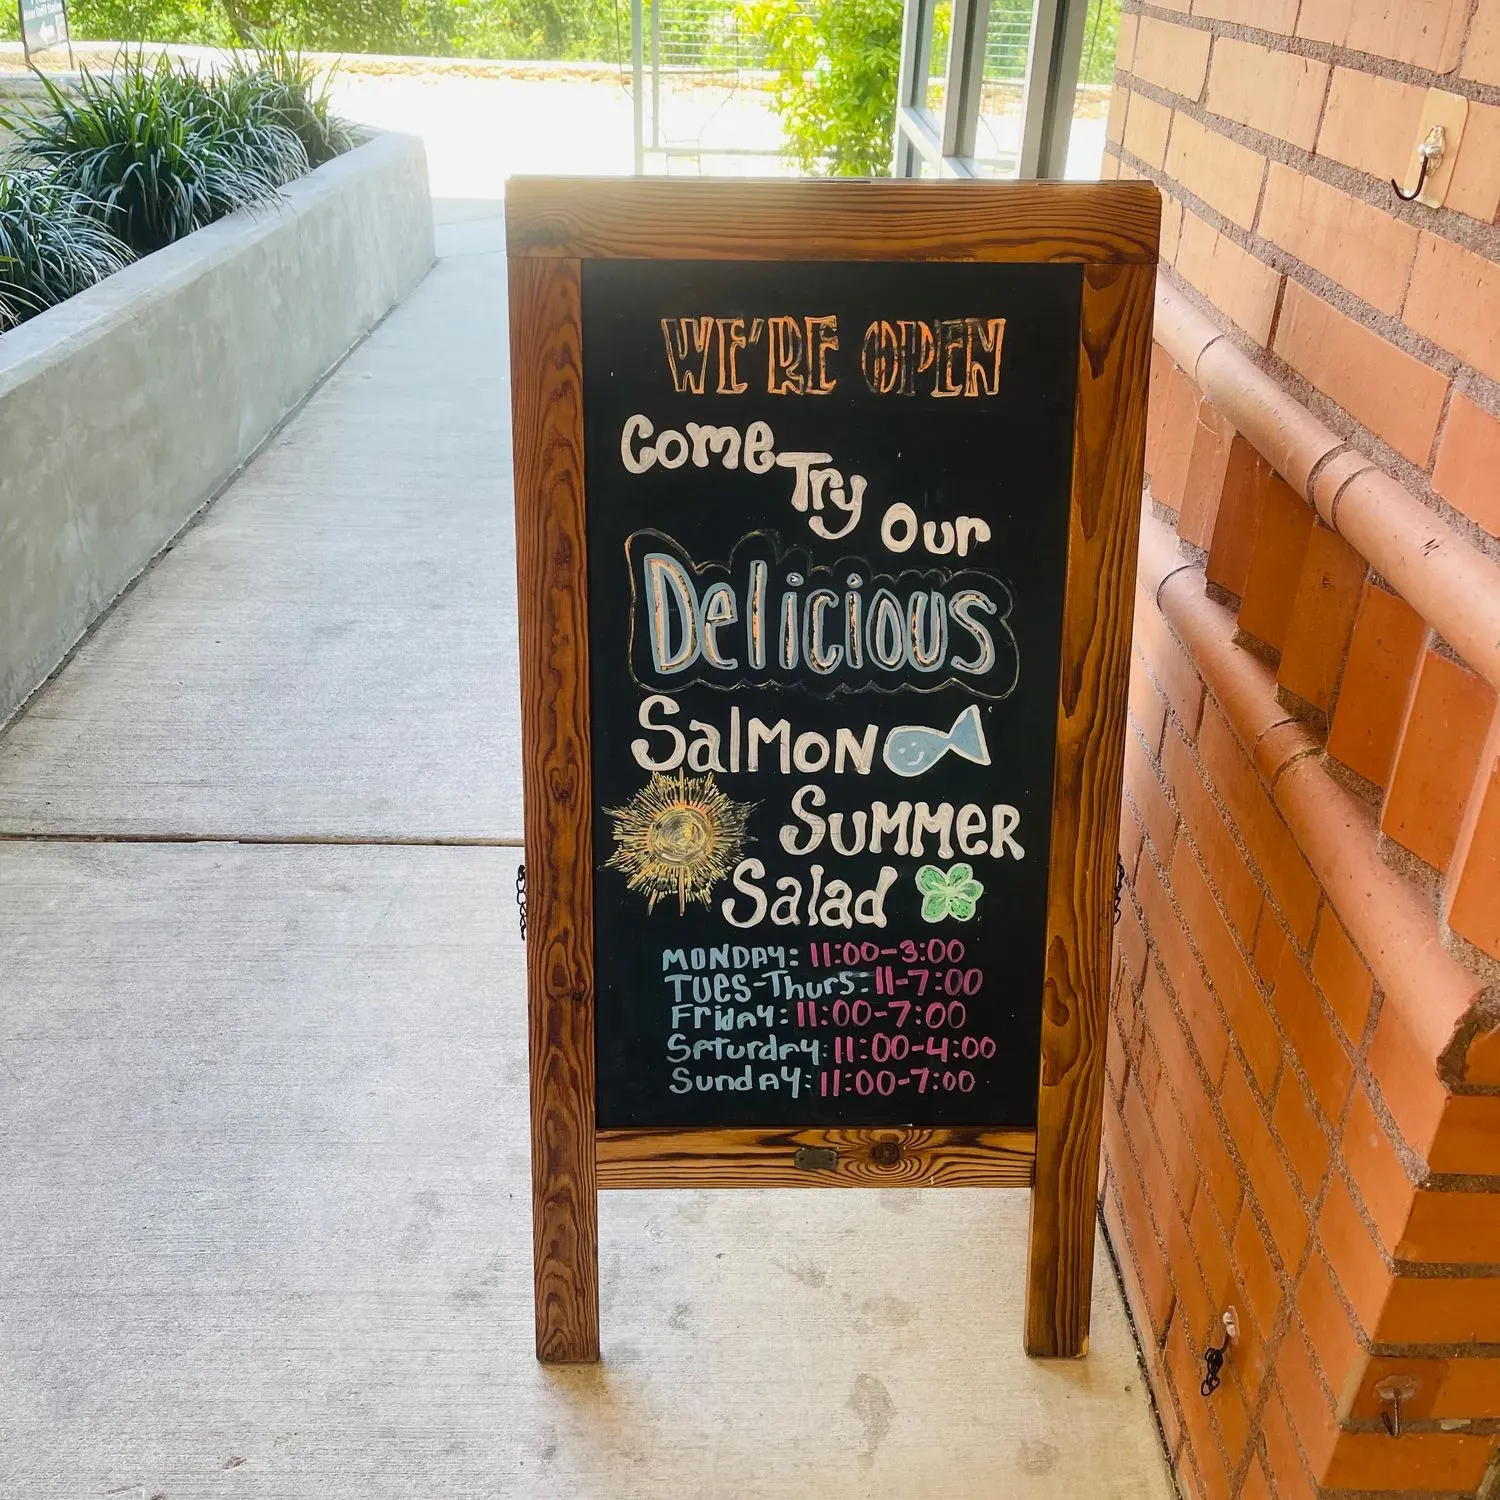 WE'RE OPEN
Come Try Our
Delicious
Salmon
Summer
Salad
MONDAY: 11:00-3:00
TUES-Thurs: 11-7:00
Friday: 11:00-7:00
Saturday: 11:00-4:00
Sunday: 11:00-7:00